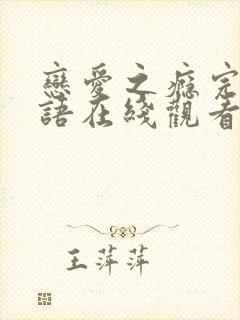 戀愛之癮完
語在綫觀看
王萍萍